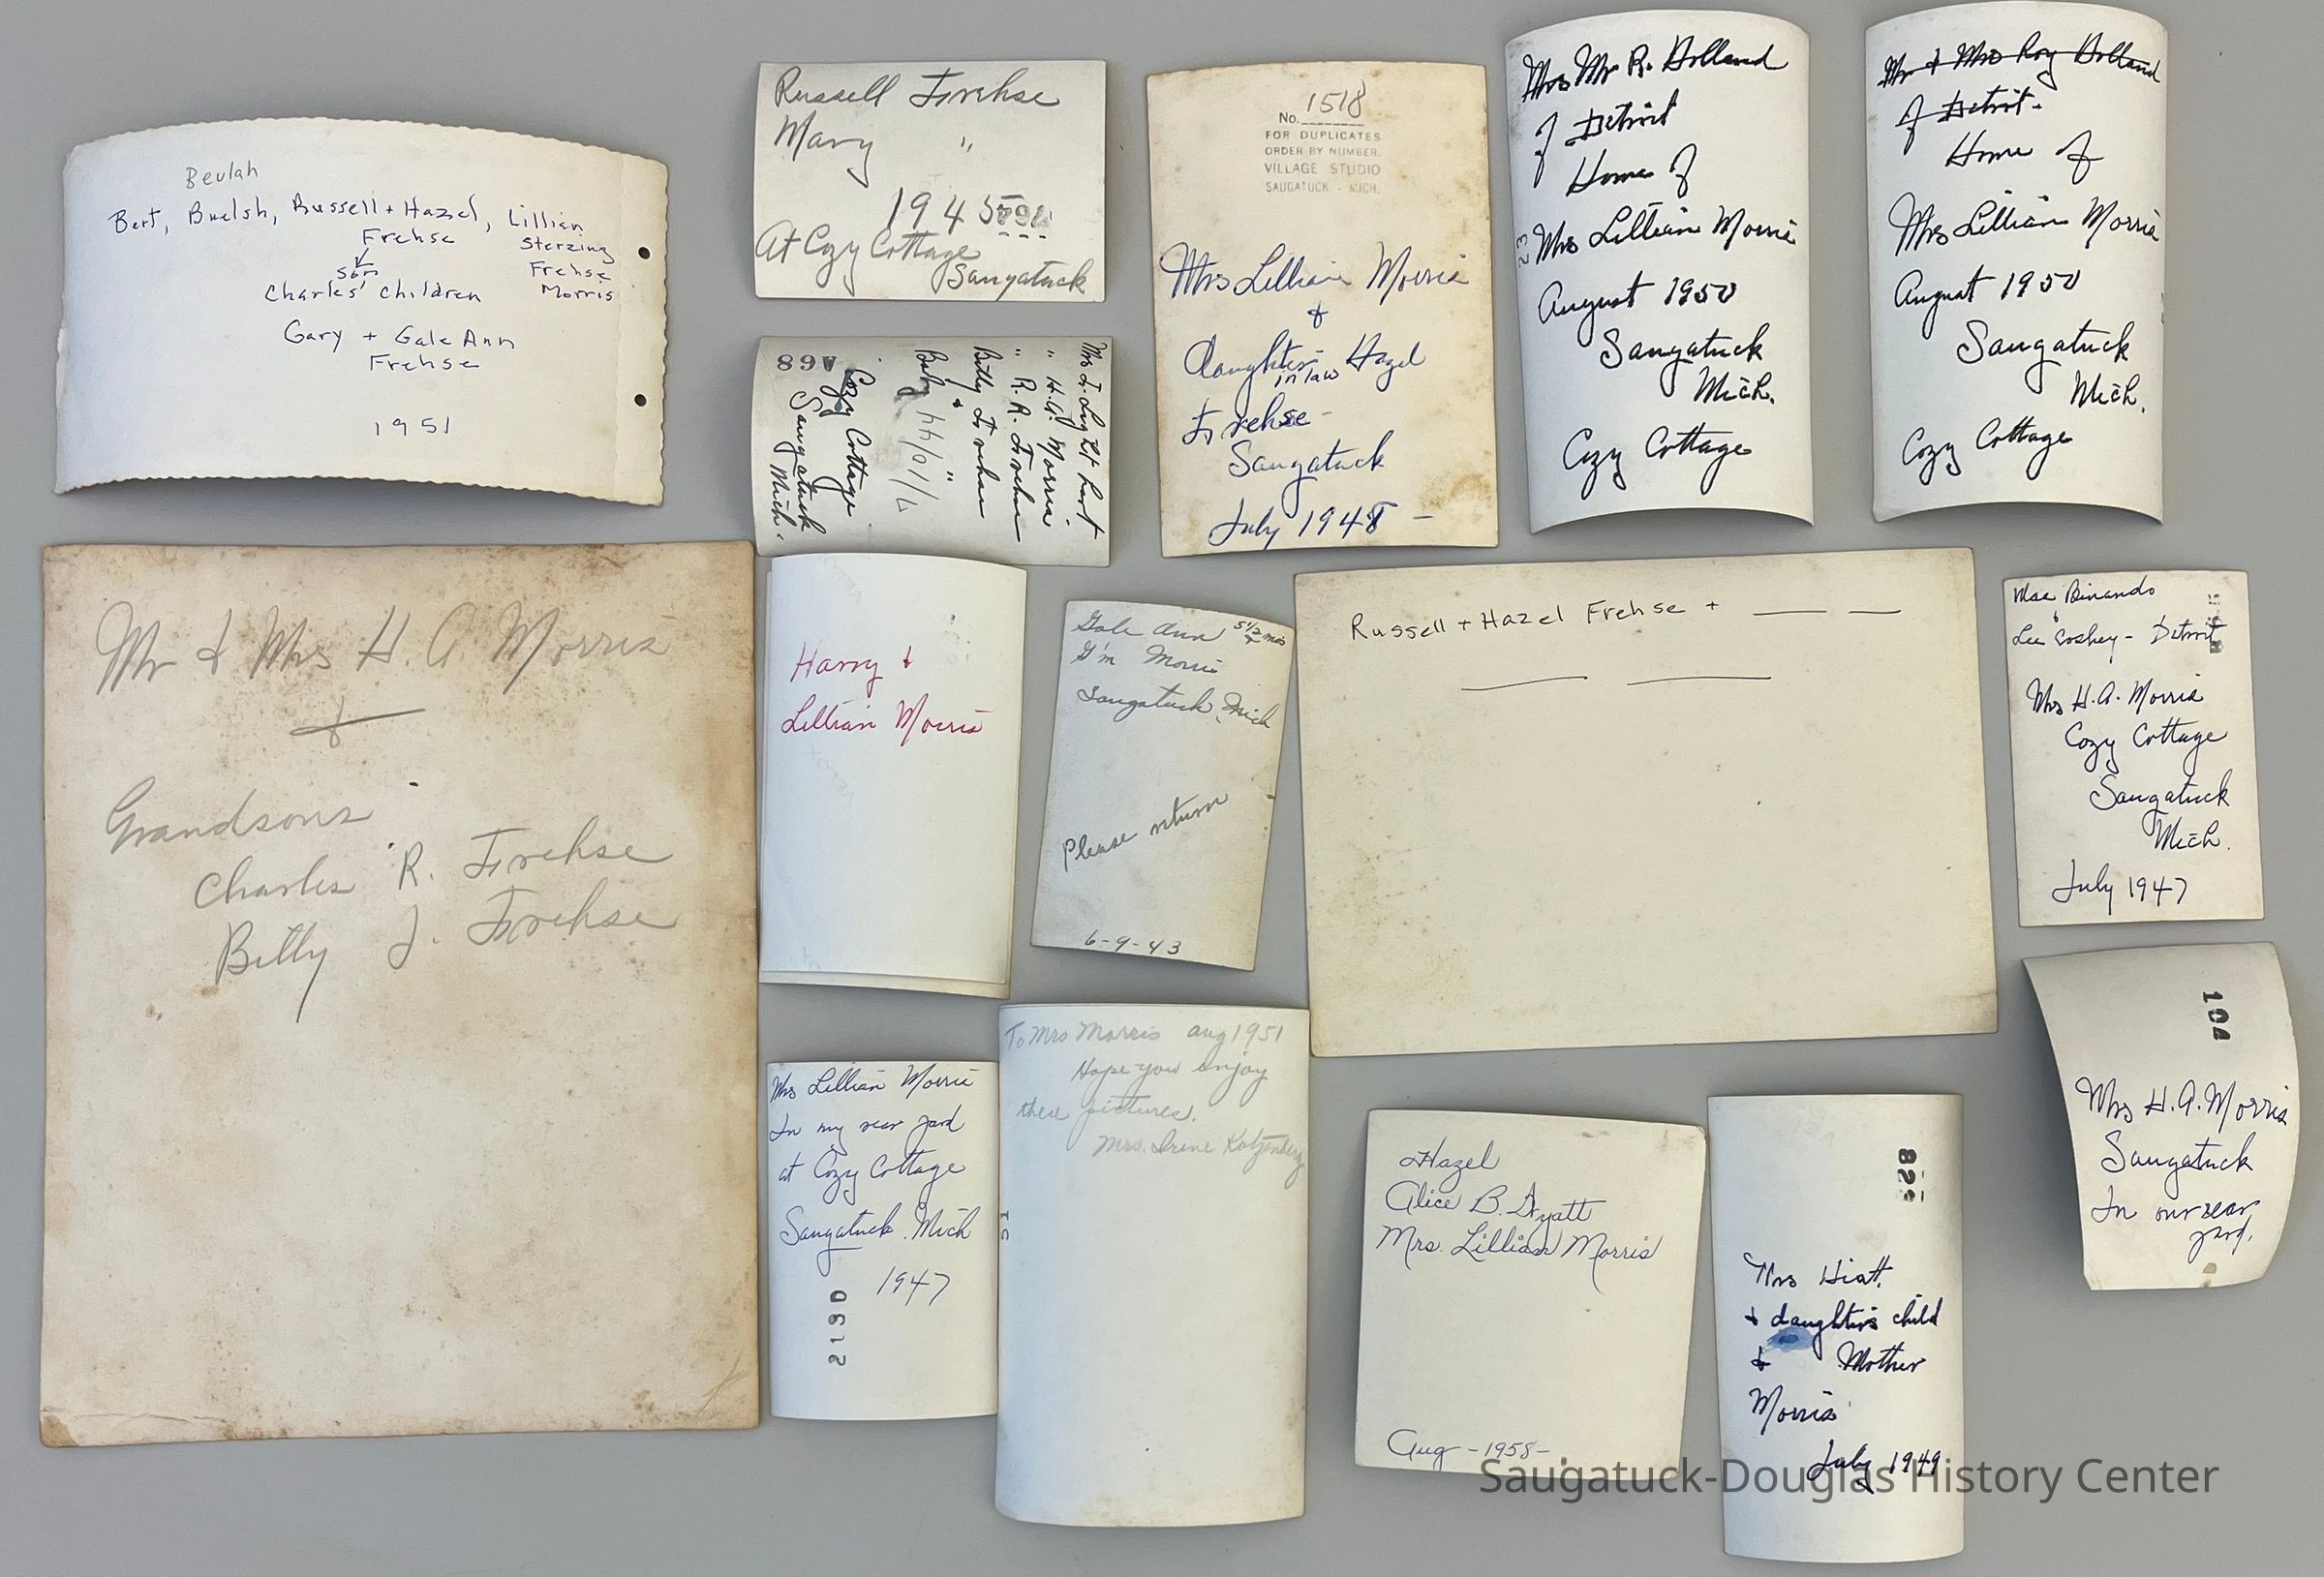 Beulah
Bert, Buelsh, Russell + Hazel, Lillian
Frehse
Sterzing
son
Frehse
Charles' children
Morris
Gary + Gale Ann
Frehse
1951
Russell Frehse
Mary "
1945
At Cozy Cottage
Saugatuck
Mrs
" H.A. Morris
" R. R. Frehse
Billy Frehse
&
Baby "
7/10/44
Cozy Cottage
Saugatuck
Mich.
A68
No. 1518
FOR DUPLICATES
ORDER BY NUMBER.
VILLAGE STUDIO
SAUGATUCK - MICH.
Mrs Lillian Morris
&
daughter Hazel
in law
Frehse -
Saugatuck
July 1948 -
Mrs Mr R. Holland
of Detroit
Home of
Mrs Lillian Morris
August 1950
Saugatuck
Mich.
Cozy Cottage
23
Mr & Mrs Roy Holland
of Detroit.
Home of
Mrs Lillian Morris
August 1950
Saugatuck
Mich.
Cozy Cottage
Mr & Mrs H. A. Morris
&
Grandsons
Charles R. Frehse
Billy J. Frehse
Harry &
Lillian Morris
Gale Ann 5 1/2 mos
G'm Morris
Saugatuck, Mich
Please return
6-9-43
Russell + Hazel Frehse +
Mae Binando
&
Lee - Detroit
Mrs H.A. Morris
Cozy Cottage
Saugatuck
Mich.
July 1947
Mrs Lillian Morris
In my rear yard
at Cozy Cottage
Saugatuck. Mich
1947
213D
To Mrs Morris aug 1951
Hope you enjoy
these pictures.
Mrs. Irene Katzenberg
51
Hazel
Alice B. Hyatt
Mrs. Lillian Morris
Aug - 1958 -
82
Mrs Hiatt
& daughters child
& Mother
Morris
July 1949
104
Mrs H.A. Morris
Saugatuck
In our rear
yard.
Saugatuck-Douglas History Center